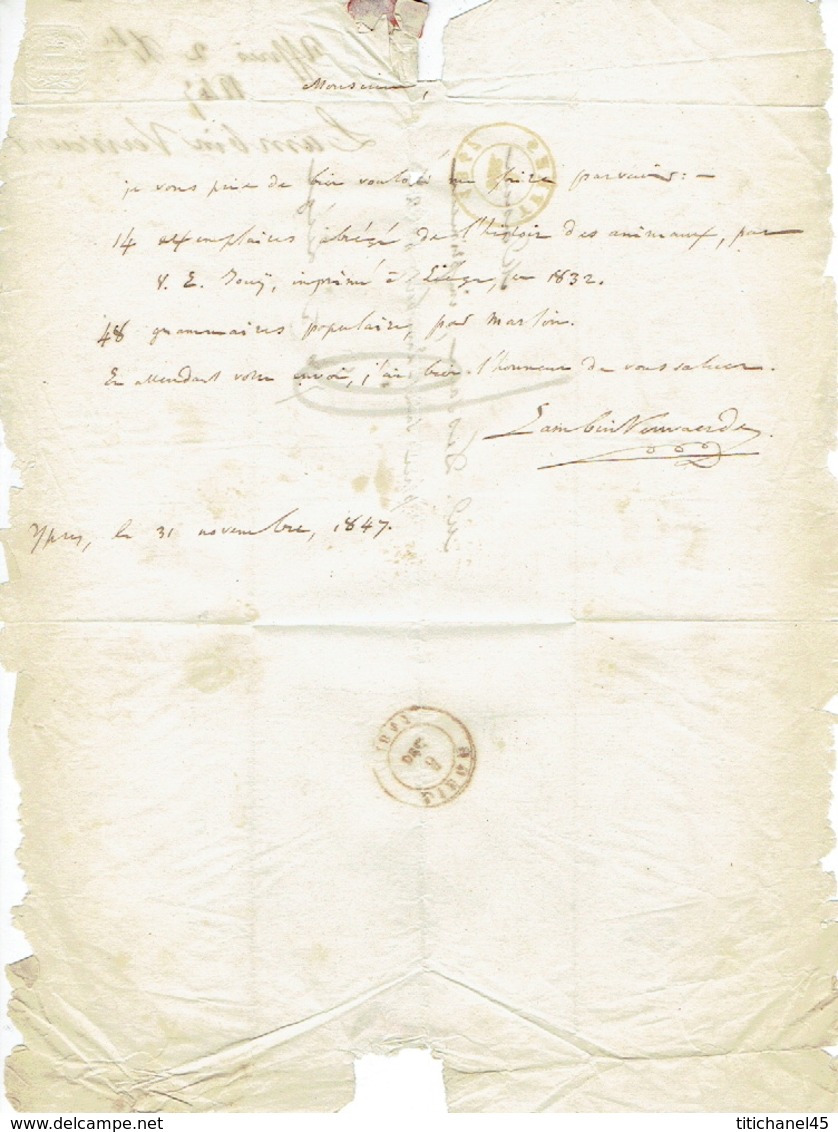 Monsieur,
je vous prie de bien vouloir me faire parvenir : —
14 exemplaires abrégé de l'histoir des animaux, par
V. E. Jouÿ, imprimé à Liége, en 1832.
48 grammaires populaire, par Marlin.
En attendant votre envoi, j'ai bien l'honneur de vous saluer.
Lambin Verwaerde
Ypres, le 31 novembre, 1847.
LIEGE
DEC
titichanel45